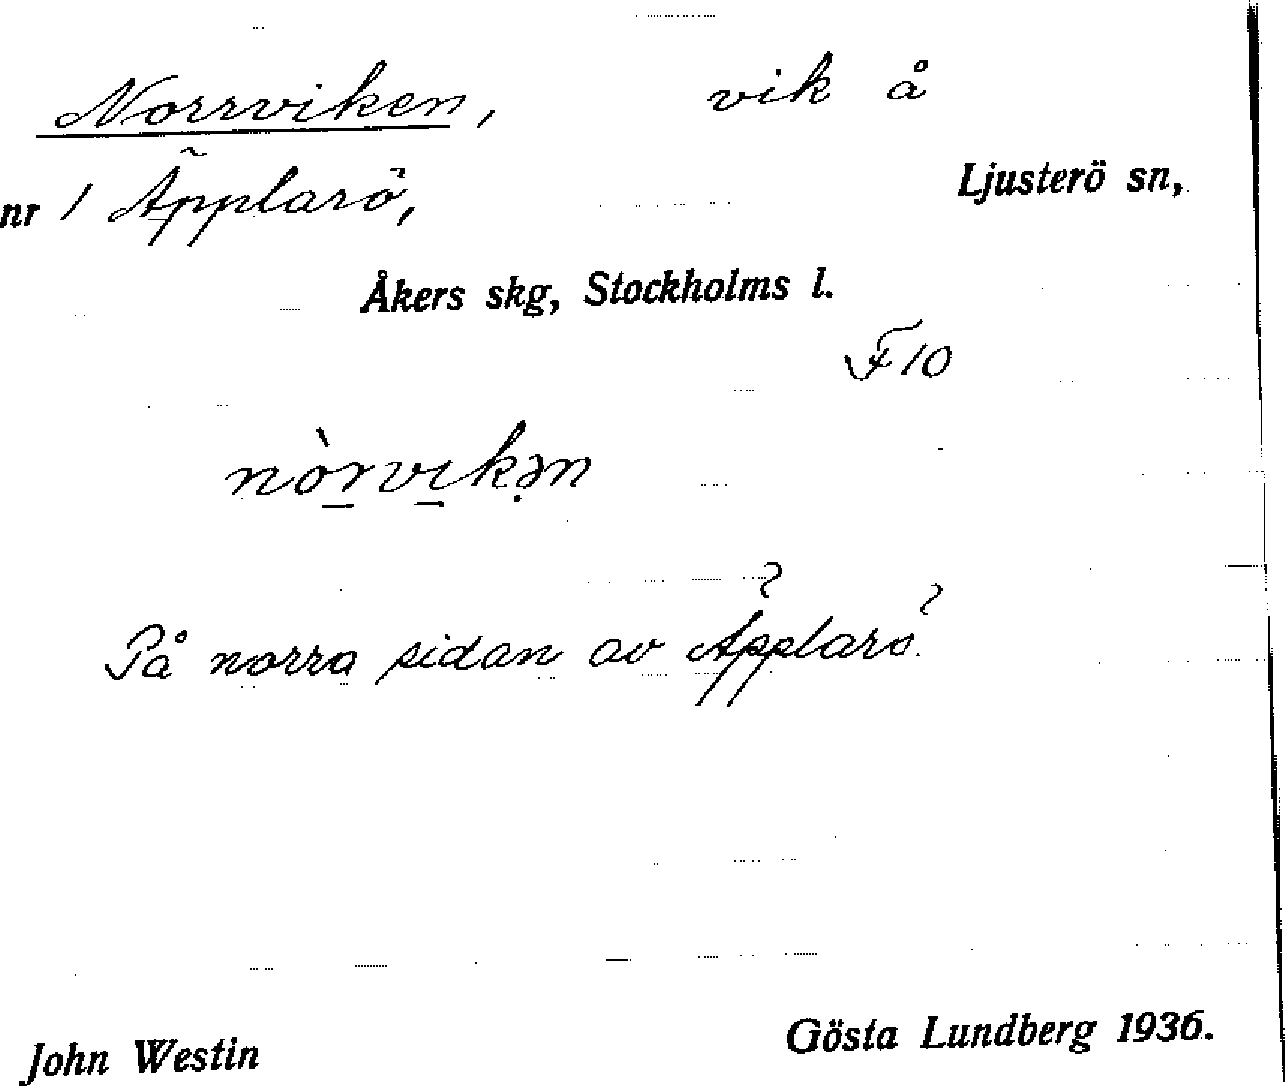 Norrviken, vik å
nr 1 Äpplarö, Ljusterö sn,
Åkers skg, Stockholms l.
F 10
nòrvikən
På norra sidan av Äpplarö.
John Westin Gösta Lundberg 1936.